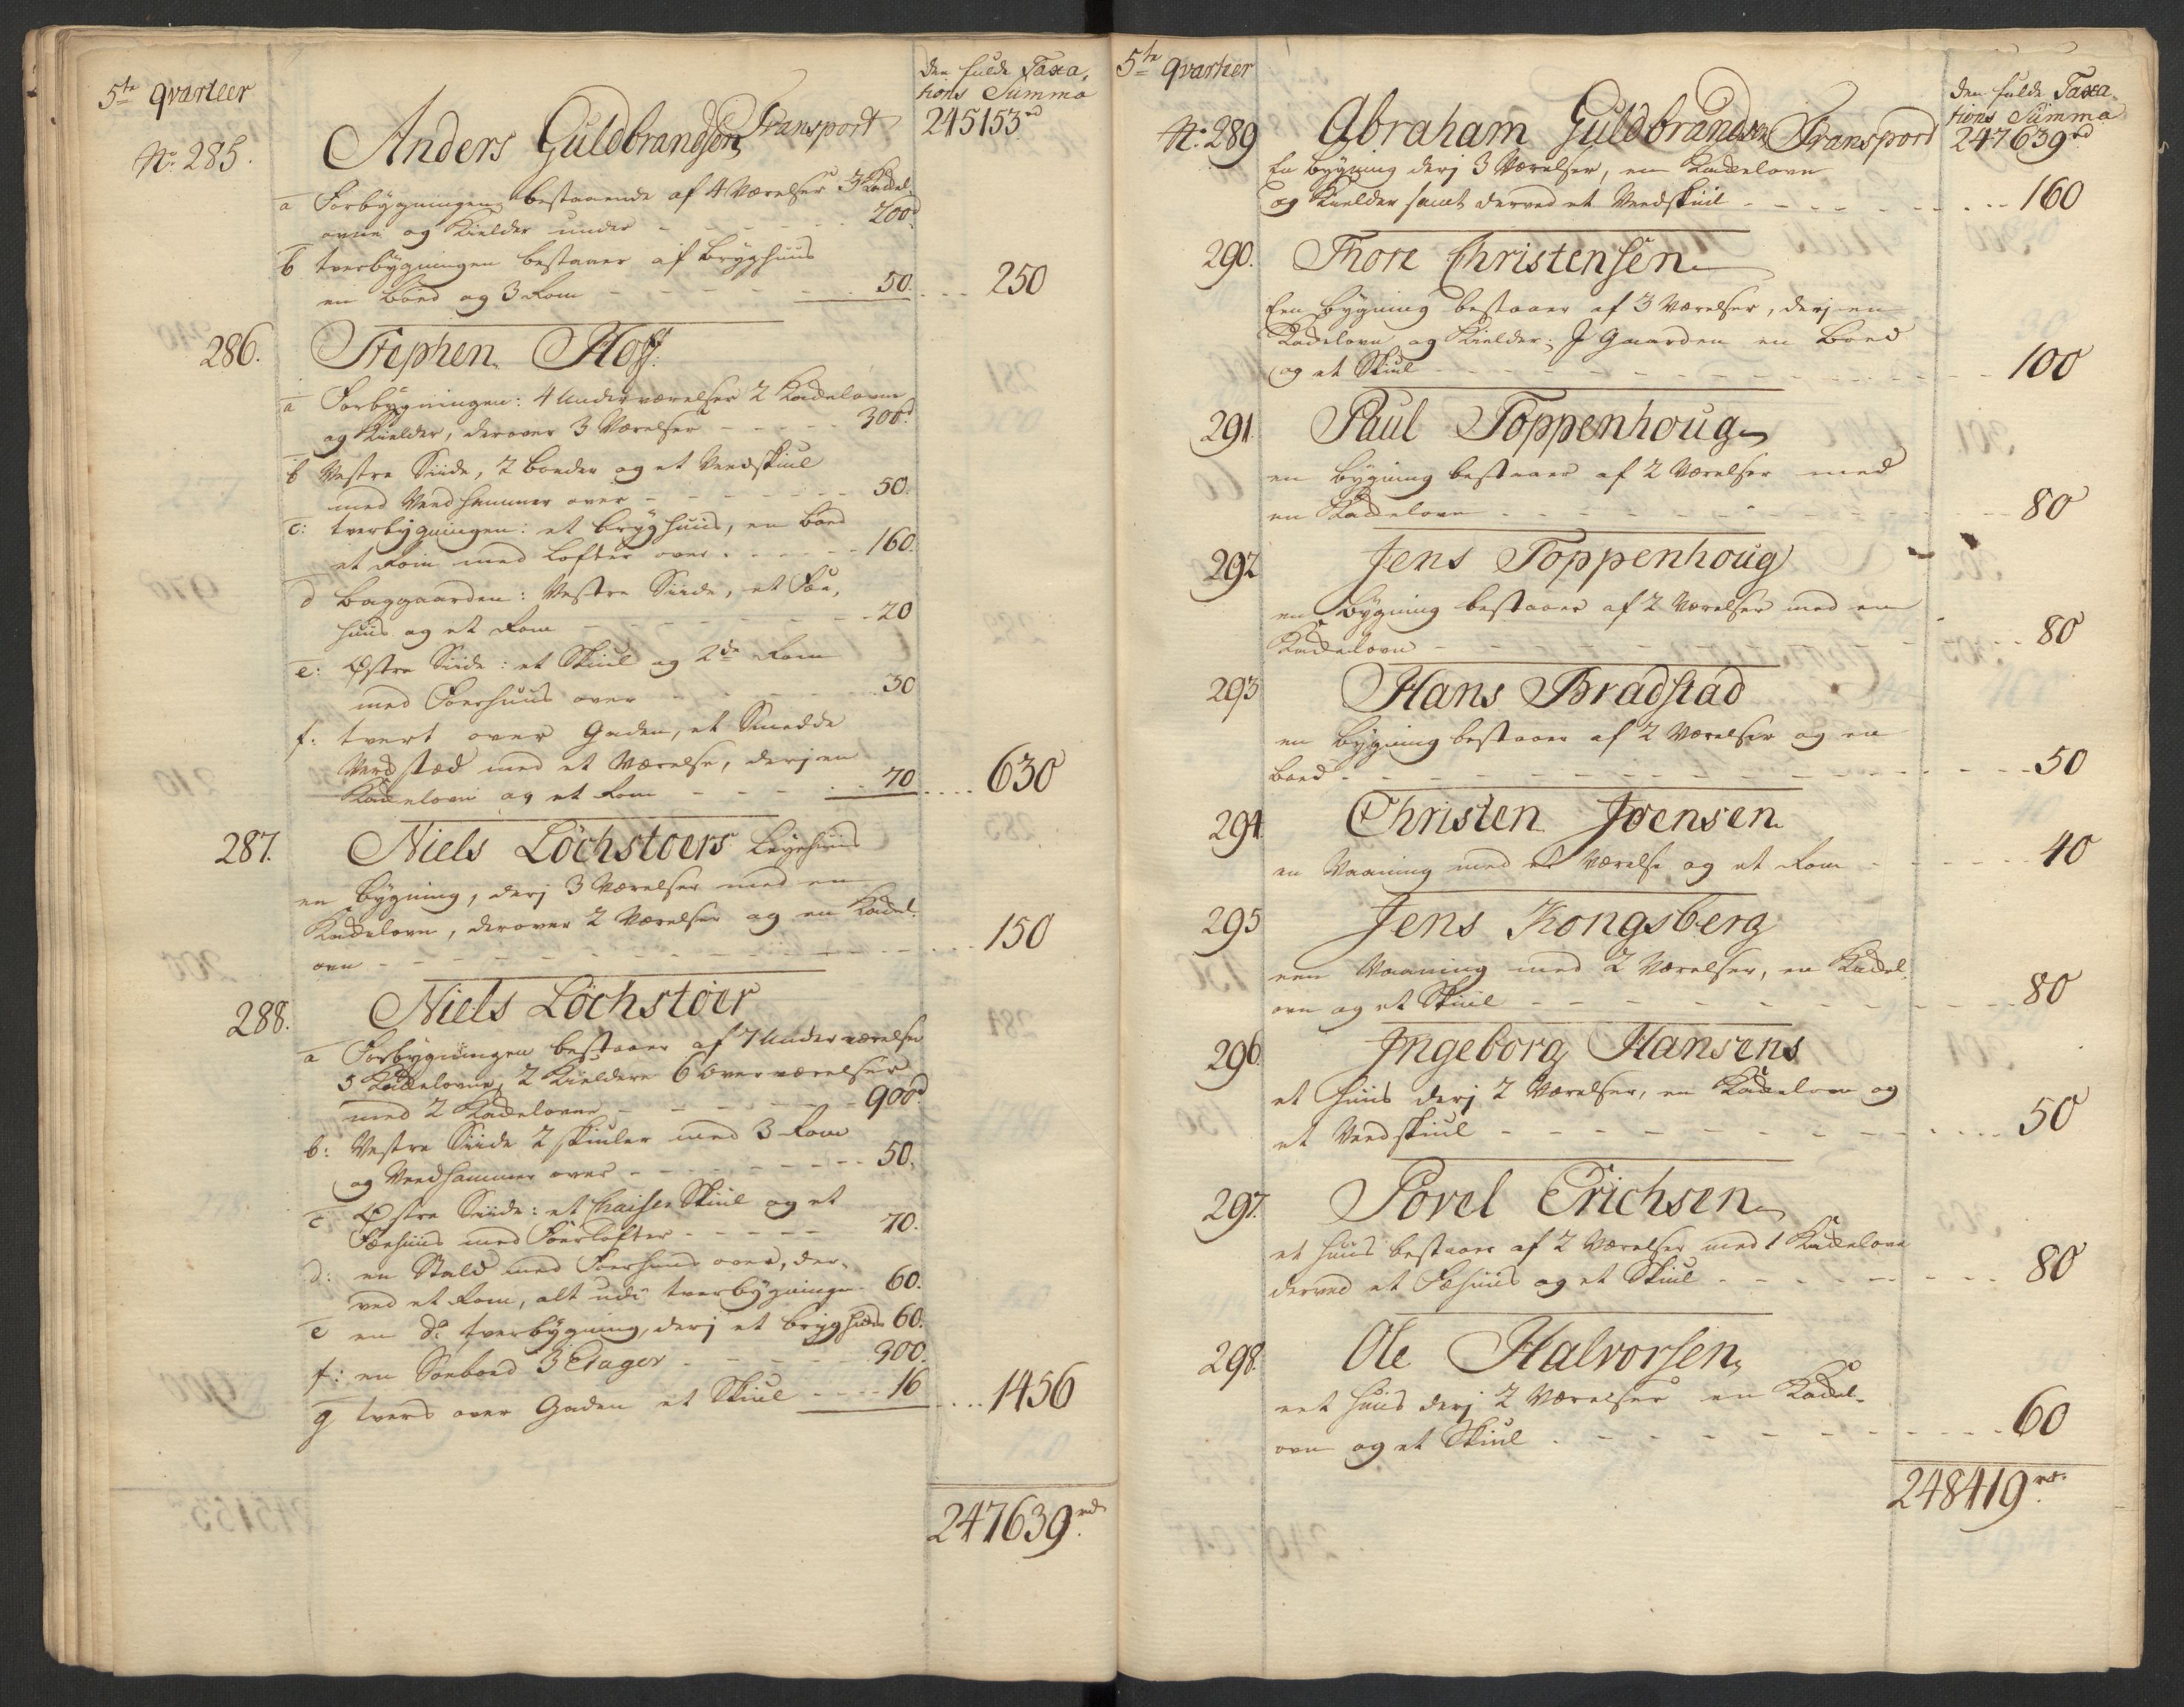 5te qvarteer
Den fulde Taxa,
tions Summa
No. 285.
Anders Guldbrandsen Transport 245153rd
a Forbygningen bestaaende af 4 Værelser 3 Kackel-
ovne og Kielder under - - - 200d
b tverbygningen bestaaer af Bryghuus
en boed og 3 Rom - - - 50. ... 250
286. Stephen Hoff.
a Forbygningen: 4 Underværelser 2 Kackelovne
og Kielder, derover 3 Værelser - - - 300d
b Vestre Siide, 2 boeder og et Veedskiul
med Veedhammer over - - - 50.
c: tverbygningen: et bryghuus, en boed
et Rom med Lofter over - - - 160.
d Baggaarden: Vestre Siide, et Fæe,
huus og et Rom - - - 20
e: Østre Siide: et Skiul og 2de Rom
med Foerhuus over - - - 30
f: tvert over Gaden, et Smedde
Verdsted med et Værelse, derj en
Kackelovn og et Rom - - - 70 .... 630
287. Niels Löchstoers Leyehuus
en bygning, derj 3 Værelser med en
Kackelovn, derover 2 Værelser og en Kackel-
ovn - - - 150
288. Niels Löchstöer
a Forbygningen bestaaer af 7 Underværelser
5 Kackelovne, 2 Kieldere 6 Overværelser
med 2 Kackelovne - - - 900d
b: Vestre Siide 2 skiuler med 3 Rom
og Veedhammer over - - - 50.
c Østre Siide: et Chaisse Skiul og et
Fæehuus med Foerlofter - - - 70.
d: en Stald med Foerhuus over, der-
ved et Rom, alt udi tverbygningen 60.
e en do tverbygning, derj et bryghuus 60.
f: en Soeboed 3 Etager - - - 300.
g tvers over Gaden et Skiul - - - 16 .... 1456
247639rd
5te qvarteer
Den fulde Taxa-
tions Summa
No. 289 Abraham Guldbrandsen Transport 247639rd
En bygning derj 3 Værelser, en Kackelovn
og Kielder samt derved et Veedskiul - - - 160
290. Thore Christensen
Een bygning bestaaer af 3 Værelser, derj en
Kackelovn og Kielder; J Gaarden en boed
og et Skiul - - - 100
291. Paul Toppenhoug
en bygning bestaaer af 2 Værelser med
en Kackelovn - - - 80
292 Jens Toppenhoug
en bygning bestaaer af 2 Værelser med en
Kackelovn - - - 80
293 Hans Bradstad
en bygning bestaaer af 2 Værelser og en
boed - - - 50
294. Christen Joensen
en Vaaning med et Værelse og et Rom - - - 40
295 Jens Kongsberg
een Vaaning med 2 Værelser, en Kackel-
ovn og et Skiul - - - 80
296. Ingeborg Hansens
et huus derj 2 Værelser, en Kackelovn og
et Veedskiul - - - 50
297. Povel Erichsen
et huus bestaaer af 2 Værelser med 1 Kackelovn
derved et Fæhuus og et Skiul - - - 80
298. Ole Halvorsen
eet huus derj 2 Værelser en Kackel-
ovn og et Skiul - - - 60
248419rd.